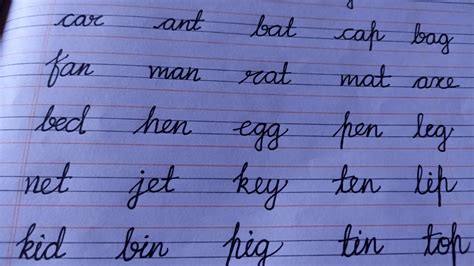 car ant bat cap bag
fan man rat mat axe
bed hen egg pen leg
net jet key ten lip
kid bin pig tin top